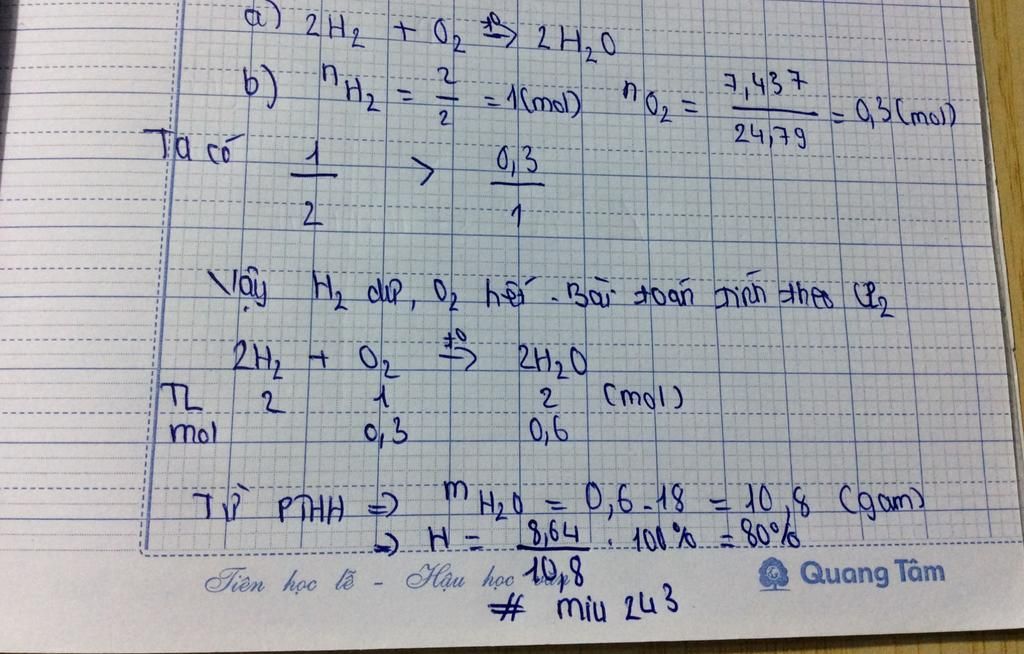 a) 2H₂ + O₂ →(t⁰) 2H₂O
b) nH₂ = 2/2 = 1(mol) nO₂ = 7,437/24,79 = 0,3(mol)
Ta có 1/2 > 0,3/1
Vậy H₂ dư, O₂ hết. Bài toán tính theo O₂
2H₂ + O₂ →(t⁰) 2H₂O
TL 2 1 2 (mol)
mol 0,3 0,6
Từ PTHH => mH₂O = 0,6.18 = 10,8 (gam)
=> H = 8,64/10,8 . 100% = 80%
Tiên học lễ - Hậu học
Quang Tâm
# miu 243